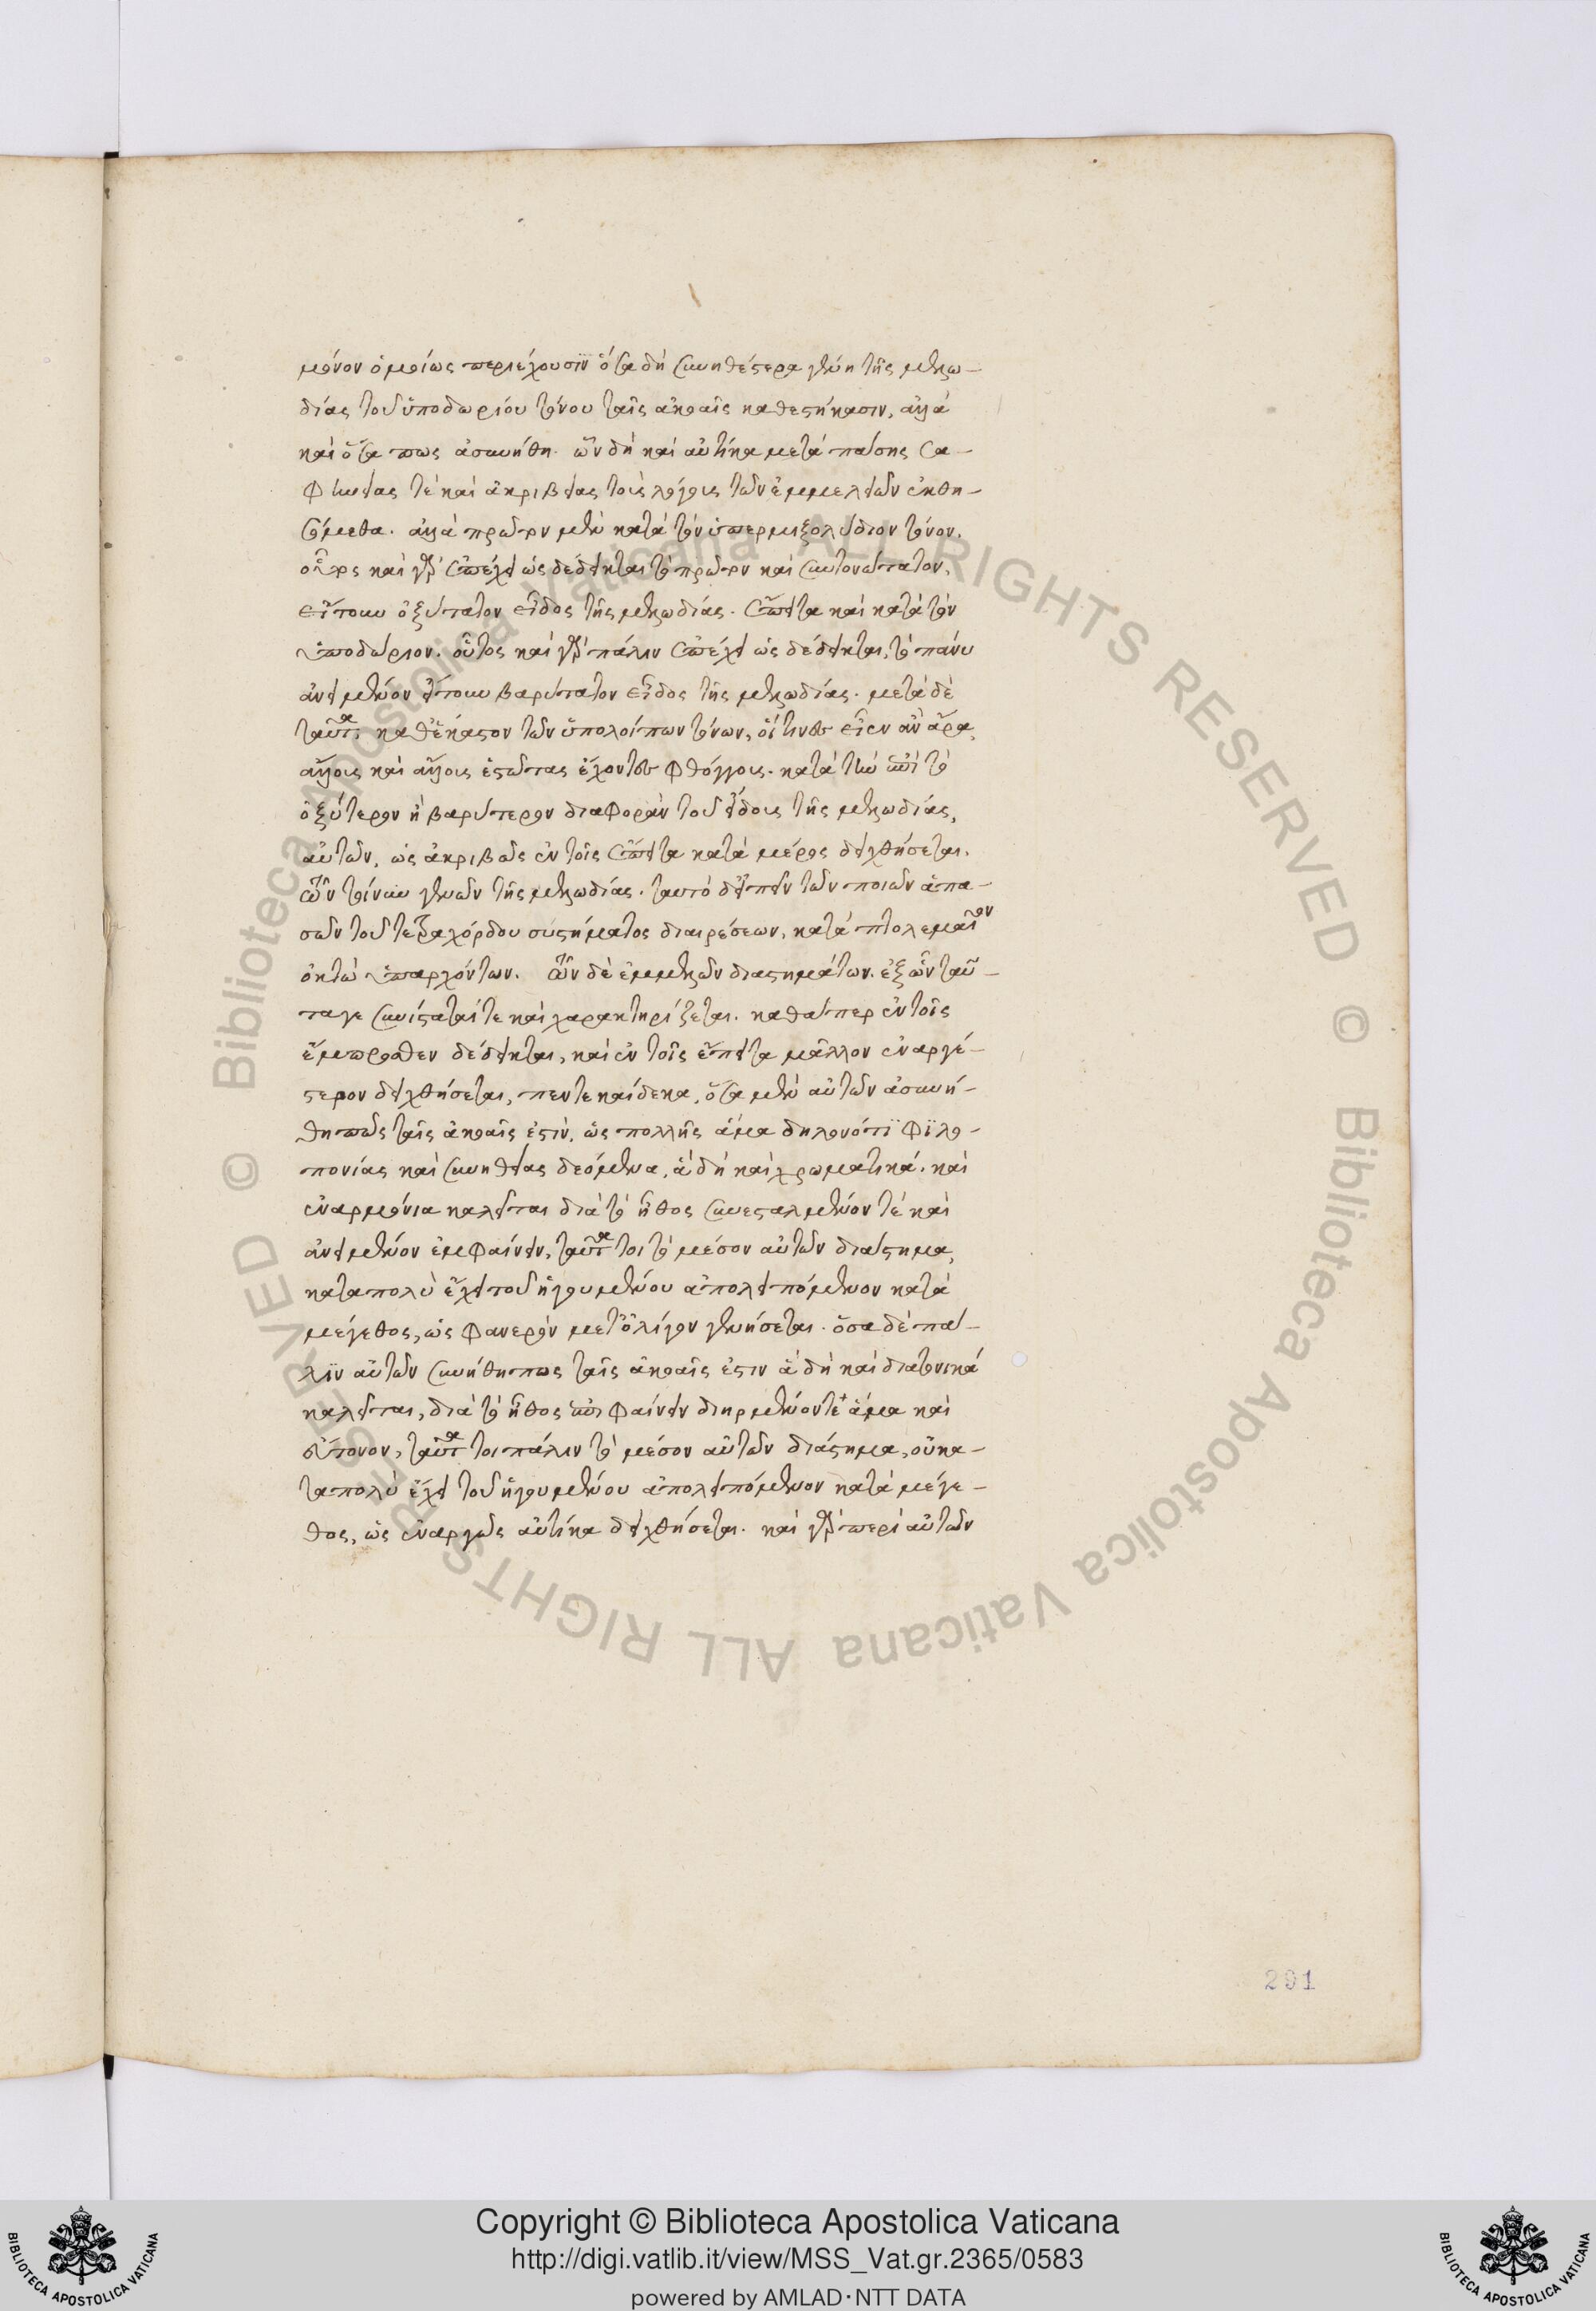 μόνον ὁμοίως περιέχουσϊν ὅσα δὴ συνηθέστερα γένη τῆς μελω-
δίας τοῦ ὑποδωρίου τόνου ταῖς ἀκοαῖς καθεστήκασιν, ἀλλὰ
καὶ ὅσα πως ἀσυνήθη. ὧν δὴ καὶ αὐτίκα μετὰ πάσης σα-
φηνείας τὲ καὶ ἀκριβείας τοὺς λόγους τῶν ἐμμελειῶν ἐκθη-
σόμεθα. ἀλλὰ πρῶτον μὲν κατὰ τὸν ὑπερμιξολύδιον τόνον.
οὗτος καὶ γὰρ ἐπέχει ὡς δέδεικται τὸ πρῶτον καὶ συντονώτατον,
εἴτουν ὀξύτατον εἶδος τῆς μελωδίας. ἔπειτα καὶ κατὰ τὸν
ὑποδώριον. οὗτος καὶ γὰρ πάλιν ἐπέχει ὡς δέδεικται, τὸ πάνυ
ἀνειμένον εἴτουν βαρύτατον εἶδος τῆς μελωδίας. μετὰ δὲ
ταῦτα, καθ' ἕκαστον τῶν ὑπολοίπων τόνων, οἵτινες εἶεν ἂν ἄρα,
ἄλλοις καὶ ἄλλοις ἑστῶτας ἔχοντες φθόγγοις. κατὰ τὴν ἐπὶ τὸ
ὀξύτερον ἢ βαρύτερον διαφορὰν τοῦ εἴδους τῆς μελωδίας,
αὐτῶν, ὡς ἀκριβῶς ἐν τοῖς ἔπειτα κατὰ μέρος δειχθήσεται.
τῶν τοίνυν γενῶν τῆς μελωδίας. ταυτὸ δ' εἰπεῖν τῶν ποιῶν ἁπα-
σῶν τοῦ τετραχόρδου συστήματος διαιρέσεων, κατὰ πτολεμαῖον
ὀκτὼ ὑπαρχόντων. τῶν δὲ ἐμμελῶν διαστημάτων. ἐξ ὧν ταῦ-
τάγε συνίσταταί τε καὶ χαρακτηρίζεται. καθάπερ ἐν τοῖς
ἔμπροσθεν δέδεικται, καὶ ἐν τοῖς ἔπειτα μᾶλλον ἐναργέ-
στερον δειχθήσεται, πεντεκαίδεκα, ὅσα μὲν αὐτῶν ἀσυνή-
θη πῶς ταῖς ἀκοαῖς ἐστὶν, ὡς πολλῆς ἅμα δηλονότϊ φϊλο-
πονίας καὶ συνηθείας δεόμενα, ἃ δὴ καὶ χρωματικά. καὶ
ἐναρμόνια καλεῖται διὰ τὸ ἦθος συνεσταλμένον τὲ καὶ
ἀνειμένον ἐμφαίνειν, ταῦτά τοι τὸ μέσον αὐτῶν διάστημα,
καταπολὺ ἔχει τοῦ ἡγουμένου ἀπολειπόμενον κατὰ
μέγεθος, ὡς φανερὸν μετ' ὀλίγον γενήσεται. ὅσα δὲ πά-
λϊν αὐτῶν συνήθη πως ταῖς ἀκοαῖς ἐστιν ἃ δὴ καὶ διατονικά
καλεῖται, διὰ τὸ ἦθος ἐπιφαίνειν διηρμένον τὲ ἅμα καὶ
εὔτονον, ταῦτά τοι πάλιν τὸ μέσον αὐτῶν διάστημα, οὐ κα-
ταπολὺ ἔχει τοῦ ἡγουμένου ἀπολειπόμενον κατὰ μέγε-
θος, ὡς ἐναργῶς αὐτίκα δειχθήσεται. καὶ γὰρ περὶ αὐτῶν
291
© Biblioteca Apostolica Vaticana ALL RIGHTS RESERVED © Biblioteca Apostolica Vaticana ALL RIGHTS RESERVED
BIBLIOTECA APOSTOLICA VATICANA
Copyright © Biblioteca Apostolica Vaticana
http://digi.vatlib.it/view/MSS_Vat.gr.2365/0583
powered by AMLAD·NTT DATA
BIBLIOTECA APOSTOLICA VATICANA